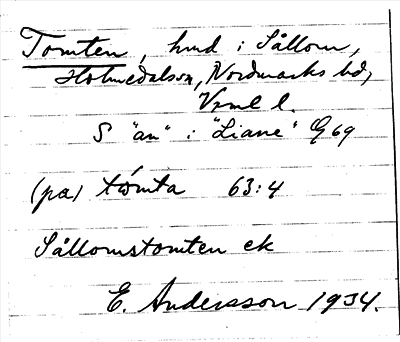 Tomten, hmd i Sållom,
Holmedals sn, Nordmarks hd,
Vrml l.
S "an" i "Liane" G 69
(på) tòmta 63:4
Sållomstomten ek
E. Andersson 1934.